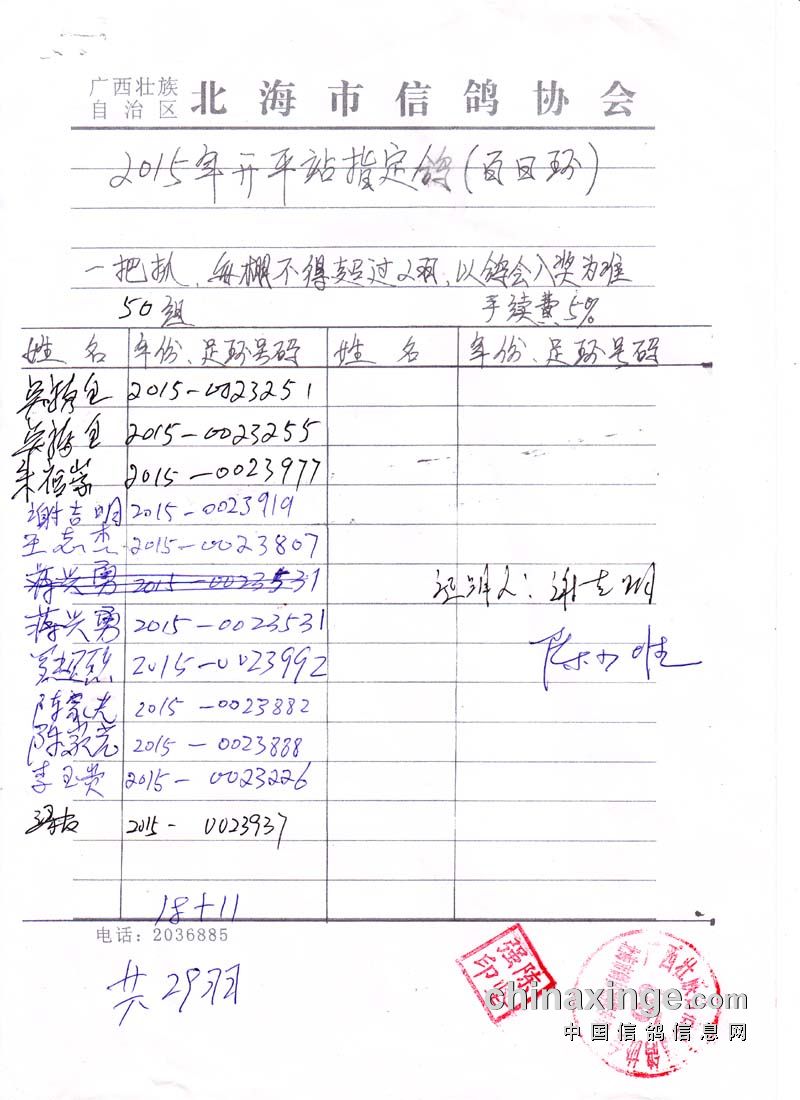 广西壮族
自治区
北海市信鸽协会
2015年开平站指定鸽(百日环)
一把扒,每棚不得超过2羽,以鸽会入奖为准
50组 手续费5%
姓名 年份、足环号码 姓名 年份、足环号码
2015-0023251
2015-0023255
2015-0023977
谢吉明 2015-0023919
王志杰 2015-0023807
蒋兴勇 2015-0023531
蒋兴勇 2015-0023531
2015-0023992
陈家光 2015-0023882
陈家光 2015-0023888
李玉贵 2015-0023226
2015-0023937
谢吉明
18+11
电话:2036885
共29羽
强陈
印
chinaxinge.com
中国信鸽信息网